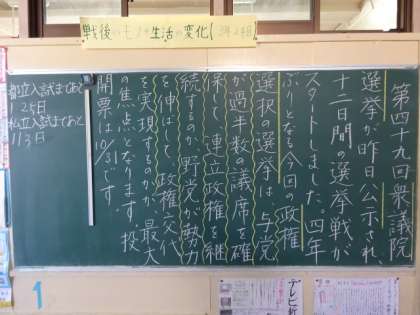 戦後のモノと生活の変化
第四十九回衆議院
選挙が昨日公示され、
十二日間の選挙戦が
スタートしました。四年
ぶりとなる今回の政権
選択の選挙は、与党
が過半数の議席を確
保して、連立政権を継
続するのか、野党が勢力
を伸ばして、政権交代
を実現するのかが、最大
の焦点となります。投
開票は10/31です。
都立入試まであと
125日
私立入試まであと
113日
1
テレビ